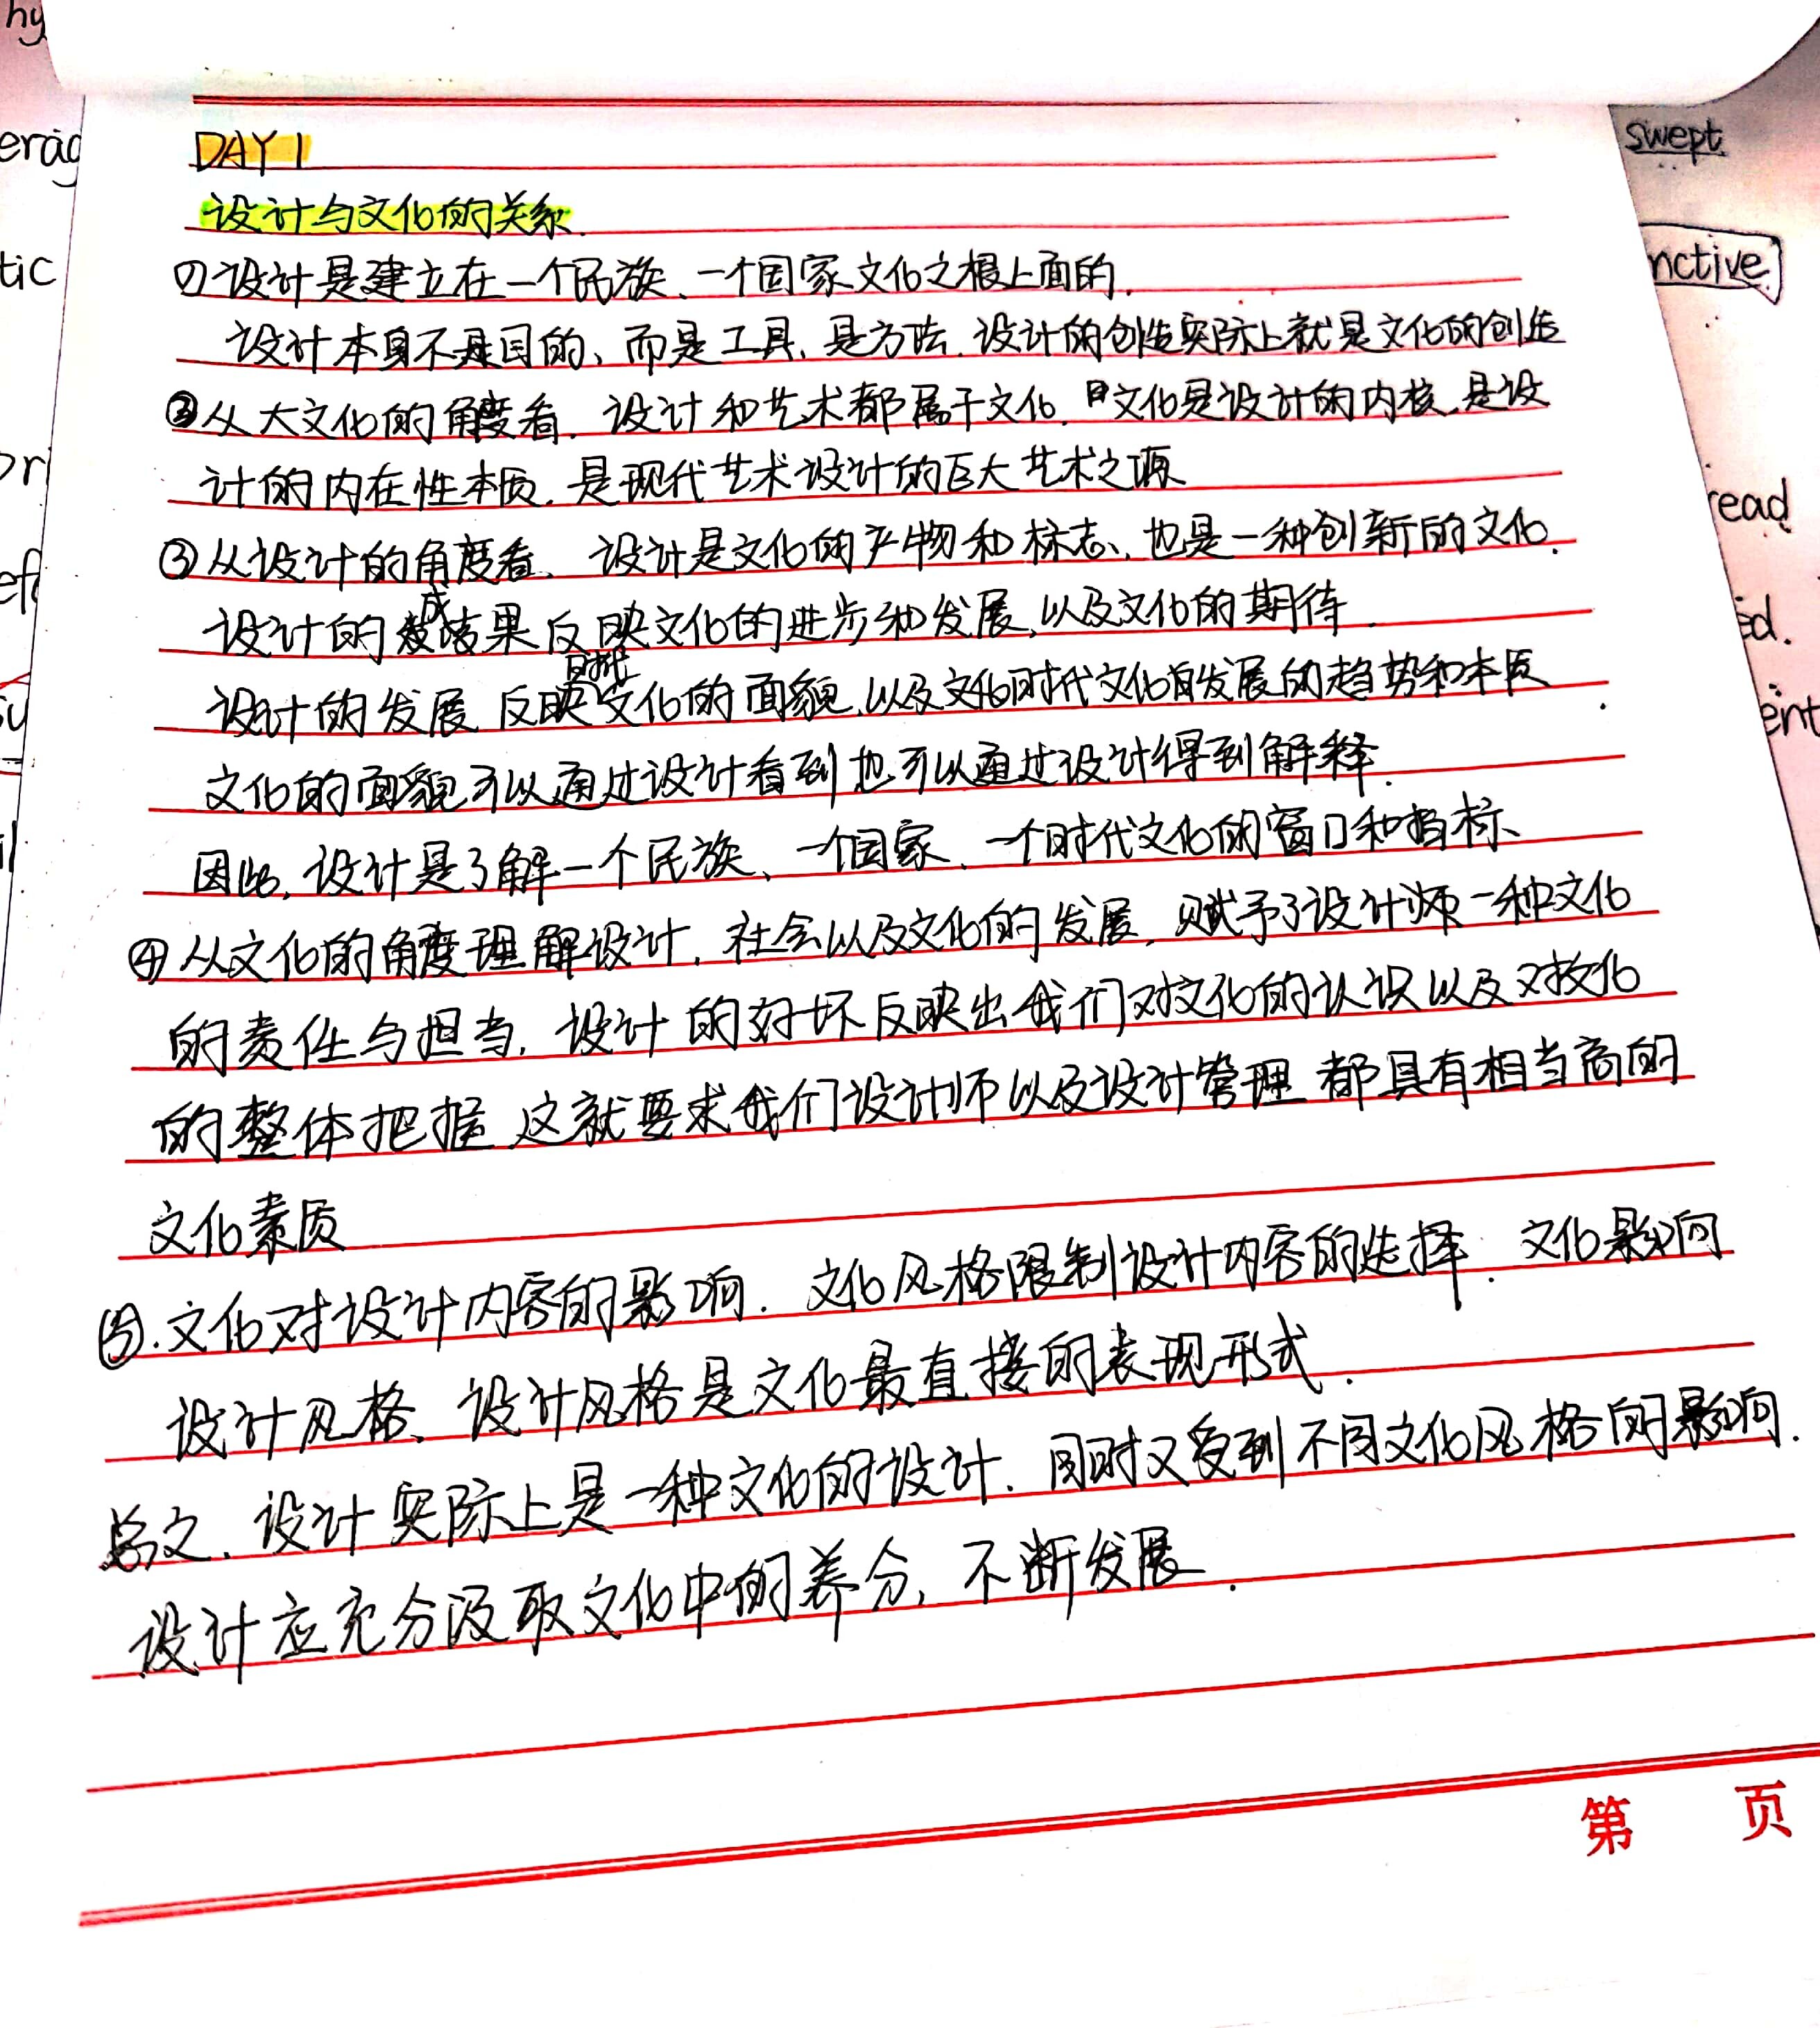 DAY 1
设计与文化的关系.
①设计是建立在一个民族、一个国家文化之根上面的.
设计本身不是目的、而是工具、是方法.设计的创造实际上就是文化的创造
②从大文化的角度看.设计和艺术都属于文化.文化是设计的内核.是设
计的内在性本质.是现代艺术设计的巨大艺术之源
③从设计的角度看、设计是文化的产物和标志、也是一种创新的文化.
设计的成果反映文化的进步和发展,以及文化的期待.
设计的发展反映时代文化的面貌,以及时代文化的发展的趋势和本质.
文化的面貌可以通过设计看到也可以通过设计得到解释.
因此,设计是了解一个民族、一个国家、一个时代文化的窗口和指标、
④从文化的角度理解设计,社会以及文化的发展,赋予了设计师一种文化
的责任与担当,设计的好坏反映出我们对文化的认识以及对文化
的整体把握.这就要求我们设计师以及设计管理都具有相当高的
文化素质
⑤.文化对设计内容的影响.文化风格限制设计内容的选择.文化影响
设计风格、设计风格是文化最直接的表现形式.
总之、设计实际上是一种文化的设计.同时又受到不同文化风格的影响.
设计应充分汲取文化中的养分,不断发展.
第 页
swept
nctive
read
ed.
ent
hy
erag
tic
ori
efe